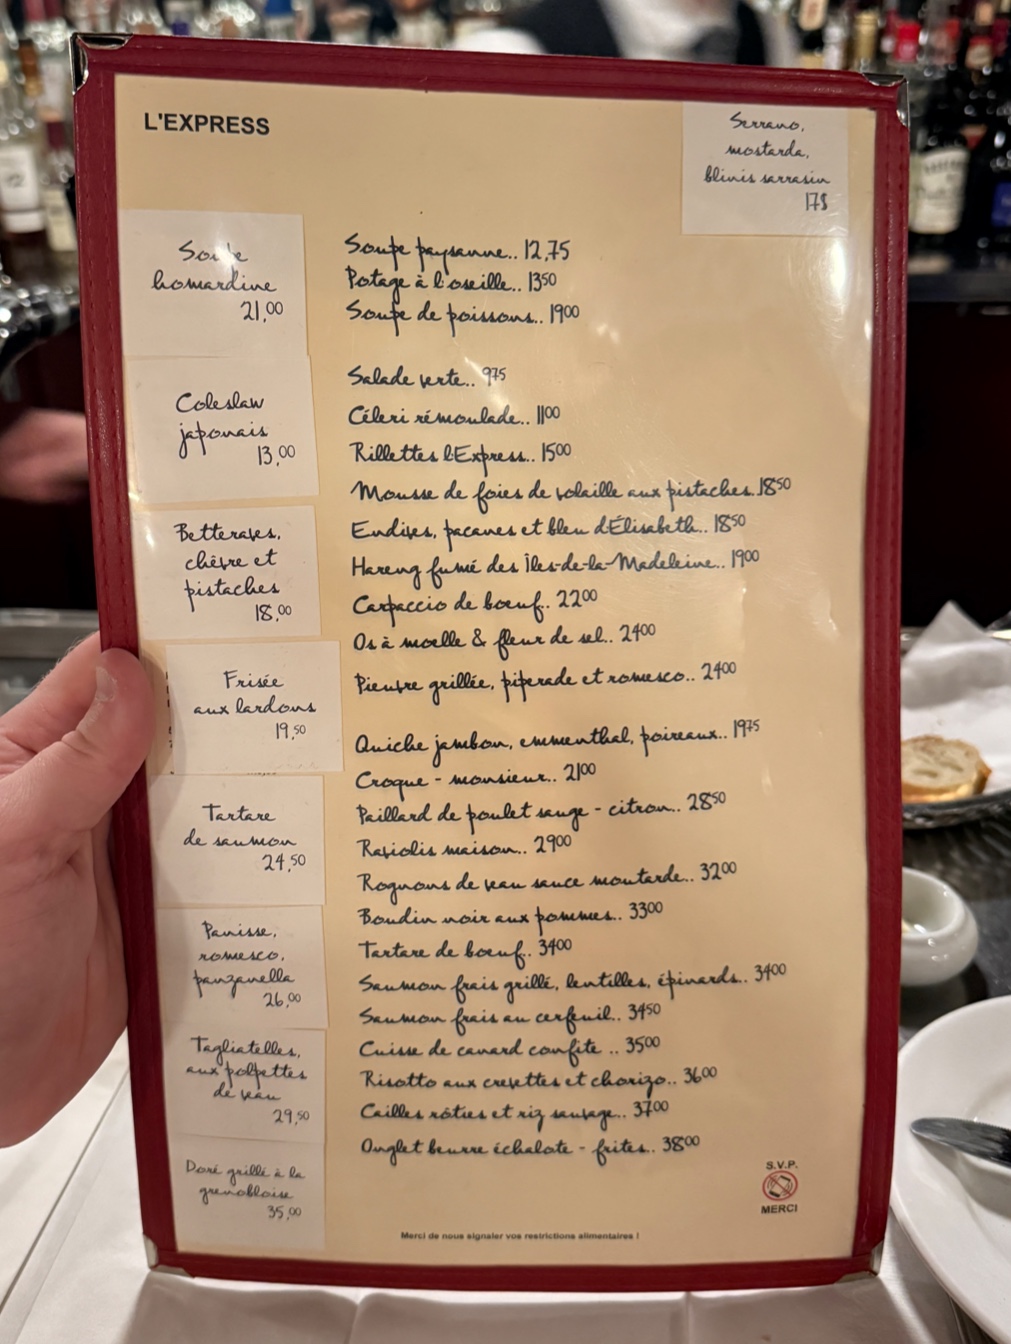 L'EXPRESS
Serrano,
mostarda,
blinis sarrasin
17$
Soupe
homardine
21,00
Coleslaw
japonais
13,00
Betteraves,
chèvre et
pistaches
18,00
Frisée
aux lardons
19,50
Tartare
de saumon
24,50
Panisse,
romesco,
panzanella
26,00
Tagliatelles,
aux polpettes
de veau
29,50
Doré grillé à la
grenobloise
35,00
Soupe paysanne.. 12,75
Potage à l'oseille.. 1350
Soupe de poissons.. 1900
Salade verte.. 975
Céleri rémoulade.. 1100
Rillettes L'Express.. 1500
Mousse de foies de volaille aux pistaches. 1850
Endives, pacanes et bleu d'Élisabeth.. 1850
Hareng fumé des Îles-de-la-Madeleine.. 1900
Carpaccio de boeuf.. 2200
Os à moelle & fleur de sel.. 2400
Pieuvre grillée, piperade et romesco.. 2400
Quiche jambon, emmenthal, poireaux.. 1975
Croque - monsieur.. 2100
Paillard de poulet sauge - citron.. 2850
Raviolis maison.. 2900
Rognons de veau sauce moutarde.. 3200
Boudin noir aux pommes.. 3300
Tartare de boeuf.. 3400
Saumon frais grillé, lentilles, épinards.. 3400
Saumon frais au cerfeuil.. 3450
Cuisse de canard confite .. 3500
Risotto aux crevettes et chorizo.. 3600
Cailles rôties et riz sauvage.. 3700
Onglet beurre échalote - frites.. 3800
S.V.P.
MERCI
Merci de nous signaler vos restrictions alimentaires !